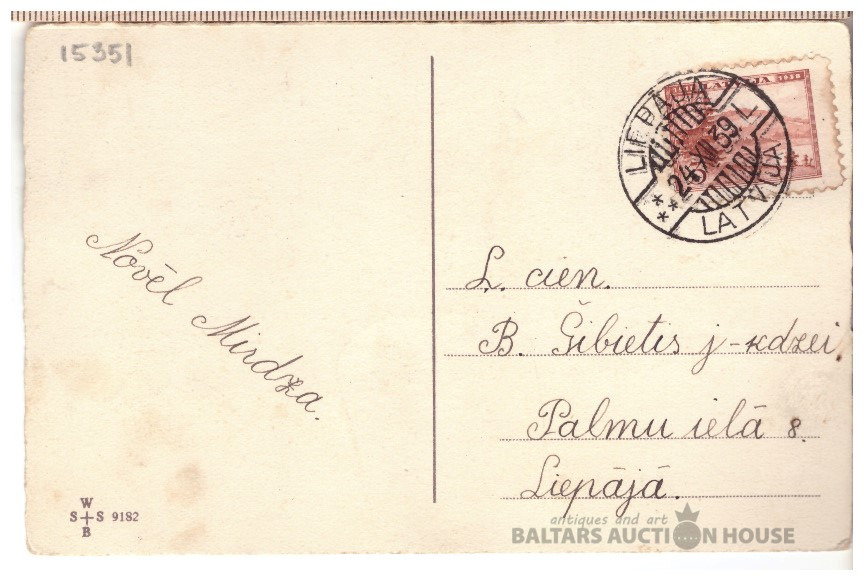 15351
LATVIJA
LIEPĀJA
24 XII 39
L
** **
LATVIJA
Novēl Mirdza.
L. cien.
B. Šibietis j-kdzei
Palmu ielā 8.
Liepājā.
W
S+S 9182
B
antiques and art
BALTARS AUCTION HOUSE